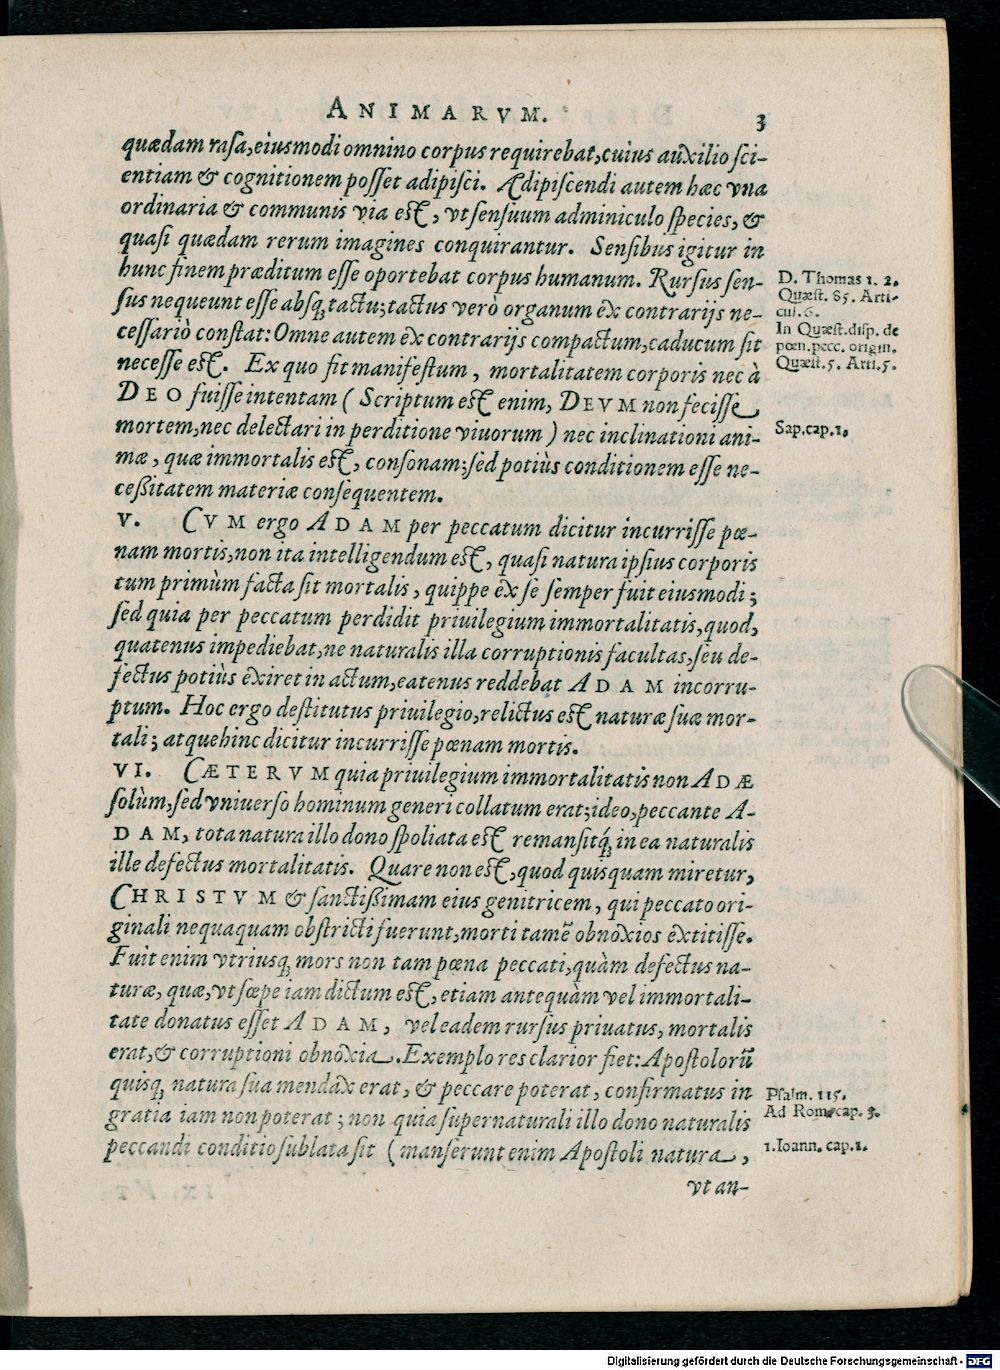 ANIMARVM. 3
quædam rasa, eiusmodi omnino corpus requirebat, cuius auxilio sci-
entiam & cognitionem posset adipisci. Adipiscendi autem hæc vna
ordinaria & communis via est, vt sensuum adminiculo species, &
quasi quædam rerum imagines conquirantur. Sensibus igitur in
hunc finem præditum esse oportebat corpus humanum. Rursus sen-
sus nequeunt esse absq; tactu; tactus verò organum ex contrarijs ne-
cessariò constat: Omne autem ex contrarijs compactum, caducum sit
necesse est. Ex quo fit manifestum, mortalitatem corporis nec à
DEO fuisse intentam ( Scriptum est enim, DEVM non fecisse
mortem, nec delectari in perditione viuorum ) nec inclinationi ani-
mæ, quæ immortalis est, consonam; sed potiùs conditionem esse ne-
cessitatem materiæ consequentem.
D. Thomas 1. 2.
Quæst. 85. Arti-
cul. 6.
In Quæst. disp. de
pœn. pecc. origin.
Quæst. 5. Arti. 5.
Sap. cap. 1.
V. CVM ergo ADAM per peccatum dicitur incurrisse pœ-
nam mortis, non ita intelligendum est, quasi natura ipsius corporis
tum primùm facta sit mortalis, quippe ex se semper fuit eiusmodi;
sed quia per peccatum perdidit priuilegium immortalitatis, quod,
quatenus impediebat, ne naturalis illa corruptionis facultas, seu de-
fectus potiùs exiret in actum, eatenus reddebat ADAM incorru-
ptum. Hoc ergo destitutus priuilegio, relictus est naturæ suæ mor-
tali; atque hinc dicitur incurrisse pœnam mortis.
VI. CÆTERVM quia priuilegium immortalitatis non ADÆ
solùm, sed vniuerso hominum generi collatum erat; ideo, peccante A-
DAM, tota natura illo dono spoliata est remansitq́; in ea naturalis
ille defectus mortalitatis. Quare non est, quod quisquam miretur,
CHRISTVM & sanctissimam eius genitricem, qui peccato ori-
ginali nequaquam obstricti fuerunt, morti tamẽ obnoxios extitisse.
Fuit enim vtriusq; mors non tam pœna peccati, quàm defectus na-
turæ, quæ, vt sœpe iam dictum est, etiam antequàm vel immortali-
tate donatus esset ADAM, vel eadem rursus priuatus, mortalis
erat, & corruptioni obnoxia. Exemplo res clarior fiet: Apostolorũ
quisq; natura sua mendax erat, & peccare poterat, confirmatus in
gratia iam non poterat; non quia supernaturali illo dono naturalis
peccandi conditio sublata sit ( manserunt enim Apostoli natura,
Psalm. 115.
Ad Rom. cap. 3.
1. Ioann. cap. 1.
vt an-
Digitalisierung gefördert durch die Deutsche Forschungsgemeinschaft - DFG